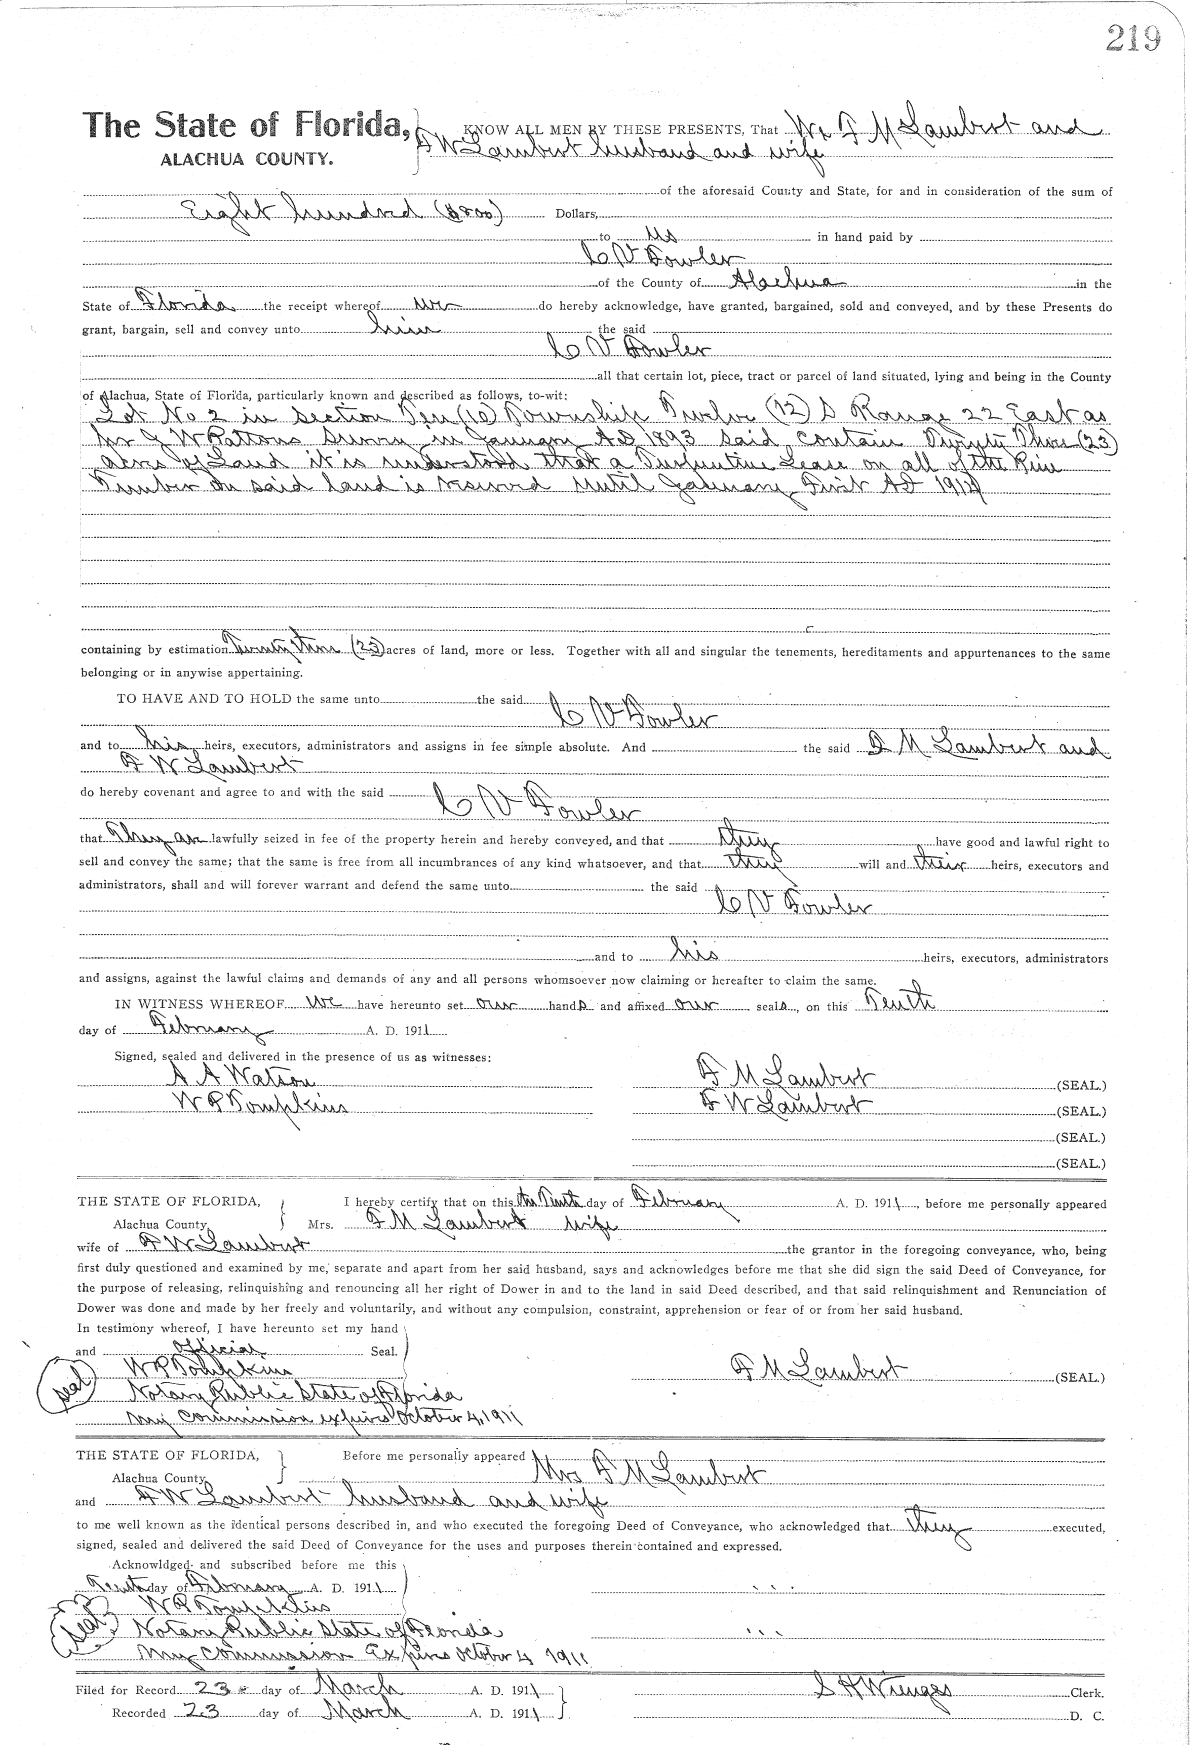 219
The State of Florida, KNOW ALL MEN BY THESE PRESENTS, That We F M Lambert and
ALACHUA COUNTY. F W Lambert husband and wife
of the aforesaid County and State, for and in consideration of the sum of
Eight hundred ($800) Dollars,
to us in hand paid by
C V Fowler
of the County of Alachua in the
State of Florida the receipt whereof we do hereby acknowledge, have granted, bargained, sold and conveyed, and by these Presents do
grant, bargain, sell and convey unto him the said
C V Fowler
all that certain lot, piece, tract or parcel of land situated, lying and being in the County
of Alachua, State of Florida, particularly known and described as follows, to-wit:
Lot No 2 in section Ten (10) Township Twelve (12) S Range 22 East as
Per J W Pattons Survey in January AD 1893 said contain Twenty Three (23)
acres of Land it is understood that a Turpentine Lease on all of the Pine
Timber on said land is reserved until January First AD 1912
containing by estimation Twenty three (23) acres of land, more or less. Together with all and singular the tenements, hereditaments and appurtenances to the same
belonging or in anywise appertaining.
TO HAVE AND TO HOLD the same unto the said
C V Fowler
and to his heirs, executors, administrators and assigns in fee simple absolute. And the said F M Lambert and
F W Lambert
do hereby covenant and agree to and with the said
C V Fowler
that They are lawfully seized in fee of the property herein and hereby conveyed, and that they have good and lawful right to
sell and convey the same; that the same is free from all incumbrances of any kind whatsoever, and that they will and their heirs, executors and
administrators, shall and will forever warrant and defend the same unto the said
C V Fowler
and to his heirs, executors, administrators
and assigns, against the lawful claims and demands of any and all persons whomsoever now claiming or hereafter to claim the same.
IN WITNESS WHEREOF We have hereunto set our hands and affixed our seals, on this Tenth
day of February A. D. 1911
Signed, sealed and delivered in the presence of us as witnesses:
A A Watson F M Lambert (SEAL.)
W P Tompkins F W Lambert (SEAL.)
(SEAL.)
(SEAL.)
THE STATE OF FLORIDA, I hereby certify that on this the Tenth day of February A. D. 1911, before me personally appeared
Alachua County Mrs. F M Lambert wife
wife of F W Lambert the grantor in the foregoing conveyance, who, being
first duly questioned and examined by me, separate and apart from her said husband, says and acknowledges before me that she did sign the said Deed of Conveyance, for
the purpose of releasing, relinquishing and renouncing all her right of Dower in and to the land in said Deed described, and that said relinquishment and Renunciation of
Dower was done and made by her freely and voluntarily, and without any compulsion, constraint, apprehension or fear of or from her said husband.
In testimony whereof, I have hereunto set my hand
and official Seal.
seal W P Tompkins F M Lambert (SEAL.)
Notary Public State of Florida
my commission expires October 4, 1911
THE STATE OF FLORIDA, Before me personally appeared Mrs F M Lambert
Alachua County
and F W Lambert husband and wife
to me well known as the identical persons described in, and who executed the foregoing Deed of Conveyance, who acknowledged that they executed,
signed, sealed and delivered the said Deed of Conveyance for the uses and purposes therein contained and expressed.
Acknowldged and subscribed before me this
Tenth day of February A. D. 1911
W P Tompkins
seal Notary Public State of Florida
my commission Expires October 4 1911
Filed for Record 23 day of March A. D. 1911 S H Wienges Clerk.
Recorded 23 day of March A. D. 1911 D. C.